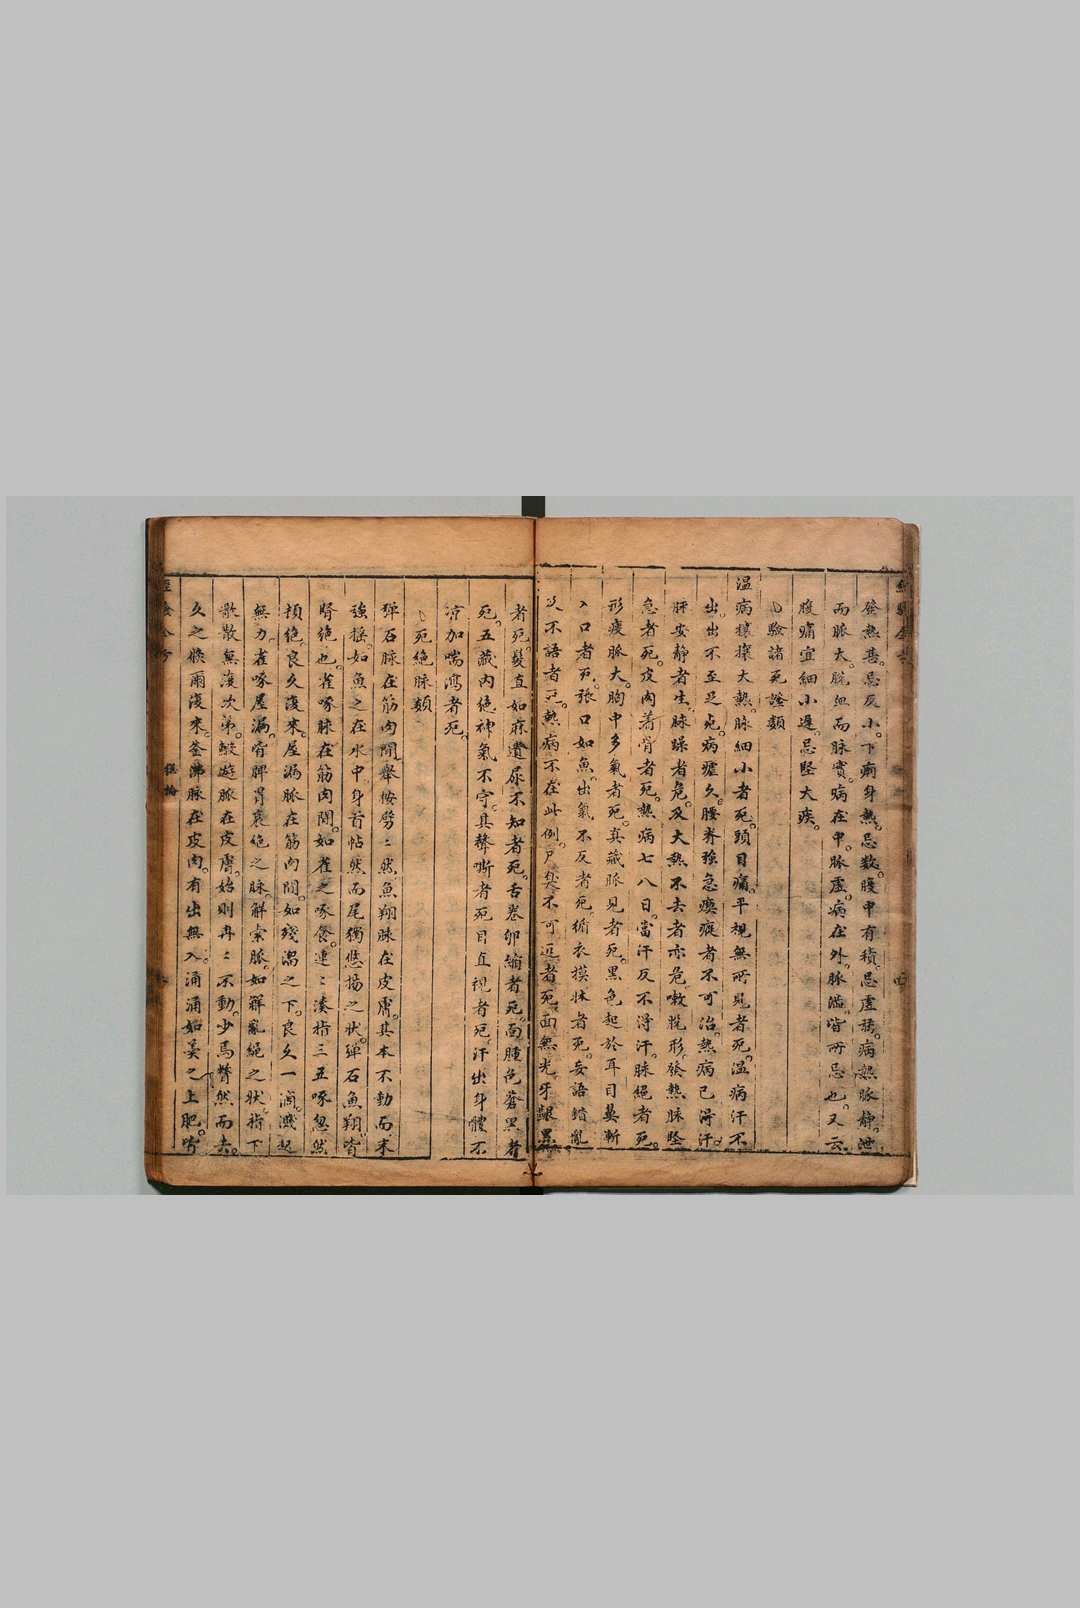 發熱甚。忌反小。下痢身熱。忌數。腹中有積。忌虛弱。病熱脈靜。泄
而脈大。脫血而脉實。病在中。脈虛。病在外。脈濇。皆所忌也。又云
腹痛宜細小遲。忌堅大疾。
驗諸死證類
溫病穰穰大熱。脉細小者死。頭目痛。平視無所見者死。溫病汗不
出。出不至足死。病瘧久。腰脊強急瘈瘲者不可治。熱病已得汗。
脉安靜者生。脉躁者危。及大熱不去者亦危。嗽脫形。發熱脉堅
急者死。皮肉著骨者死。熱病七八日。當汗反不得汗。脉絕者死。
形瘦脈大。胸中多氣者死。真藏脈見者死。黑色起於耳目鼻漸
入口者死。張口如魚。出氣不反者死。循衣摸牀者死。妄語錯亂
及不語者死。熱病不在此例。尸臭不可近者死。面無光牙齦黑
者死。髮直如麻遺尿不知者死。舌卷卵縮者死。面腫色蒼黑者
死。五藏內絕神氣不守。其聲嘶者死。目直視者死。汗出身體不
涼加喘瀉者死。
死絕脉類
彈石脉在筋肉間。舉按劈〻然。魚翔脉在皮膚。其本不動而末
強搖。如魚之在水中。身首帖然而尾獨悠揚之狀。彈石魚翔皆
腎絕也。雀啄脉在筋肉間。如雀之啄食。連〻湊指三五啄忽然
頓絕。良久復來。屋漏脈在筋肉間。如殘溜之下。良久一滴。濺起
無力。雀啄屋漏。皆脾胃衰絕之脉。解索脈。如解亂繩之狀。指下
散散無復次第。蝦遊脈在皮膚。始則冉〻不動。少焉瞥然而去。
久之倏爾復來。釜沸脉在皮肉。有出無入。涌涌如羹之上肥。皆